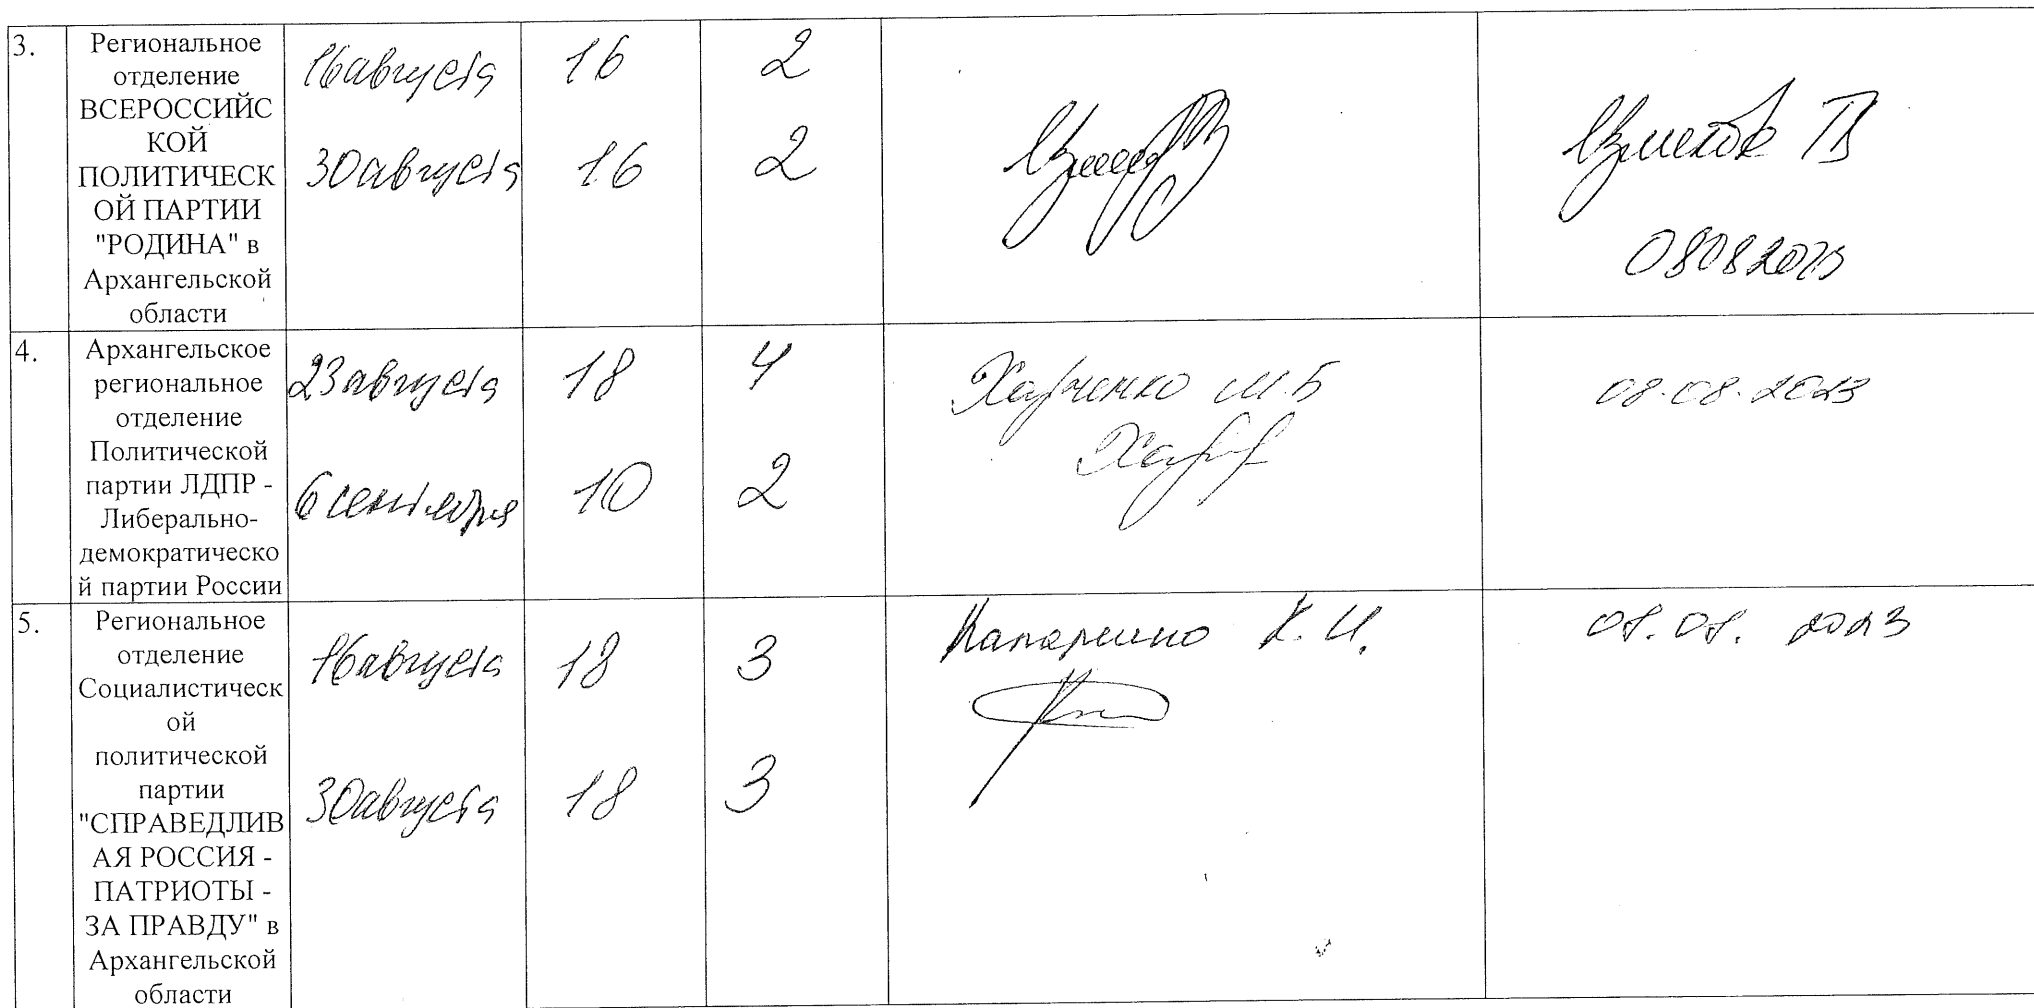 3.
Региональное
отделение
ВСЕРОССИЙС
КОЙ
ПОЛИТИЧЕСК
ОЙ ПАРТИИ
"РОДИНА" в
Архангельской
области
16 августа 16 2
30 августа 16 2
08082023
4.
Архангельское
региональное
отделение
Политической
партии ЛДПР -
Либерально-
демократическо
й партии России
23 августа 18 4
6 сентября 10 2
Харченко М.Б
08.08.2023
5.
Региональное
отделение
Социалистическ
ой
политической
партии
"СПРАВЕДЛИВ
АЯ РОССИЯ -
ПАТРИОТЫ -
ЗА ПРАВДУ" в
Архангельской
области
16 августа 18 3
30 августа 18 3
К.И.
08.08.2023